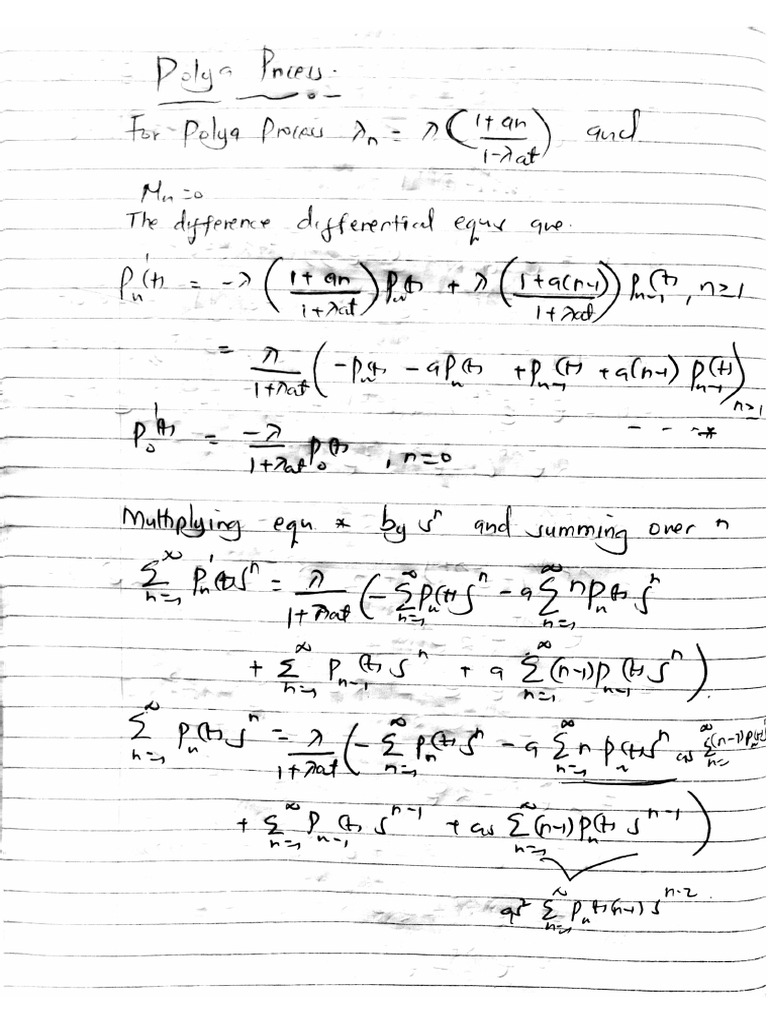 Polya Process.
For Polya Process λ_n = λ((1+an)/(1-λat)) and
M_n = 0
The difference differential equns are.
P_n'(t) = -λ((1+an)/(1+λat))P_n(t) + λ((1+a(n-1))/(1+λat))P_{n-1}(t), n≥1
= λ/(1+λat) (-P_n(t) - aP_n(t) + P_{n-1}(t) + a(n-1) P_{n-1}(t)) n≥1
---*
P_0'(t) = -λ/(1+λat) P_0(t), n=0
Multiplying equ * by s^n and summing over n
∑_{n=1}^∞ P_n'(t)s^n = λ/(1+λat) (-∑_{n=1}^∞ P_n(t)s^n - a∑_{n=1}^∞ nP_n(t)s^n
+ ∑_{n=1}^∞ P_{n-1}(t)s^n + a∑_{n=1}^∞ (n-1)P_{n-1}(t)s^n).
∑_{n=1}^∞ P_n(t)s^n = λ/(1+λat) (-∑_{n=1}^∞ P_n(t)s^n - a∑_{n=1}^∞ n P_n(t)s^n
+ ∑_{n=1}^∞ P_{n-1}(t)s^{n-1} + as∑_{n=1}^∞ (n-1)P_n(t)s^{n-1})
as²∑_{n=1}^∞ P_n(t)(n-1)s^{n-2}.